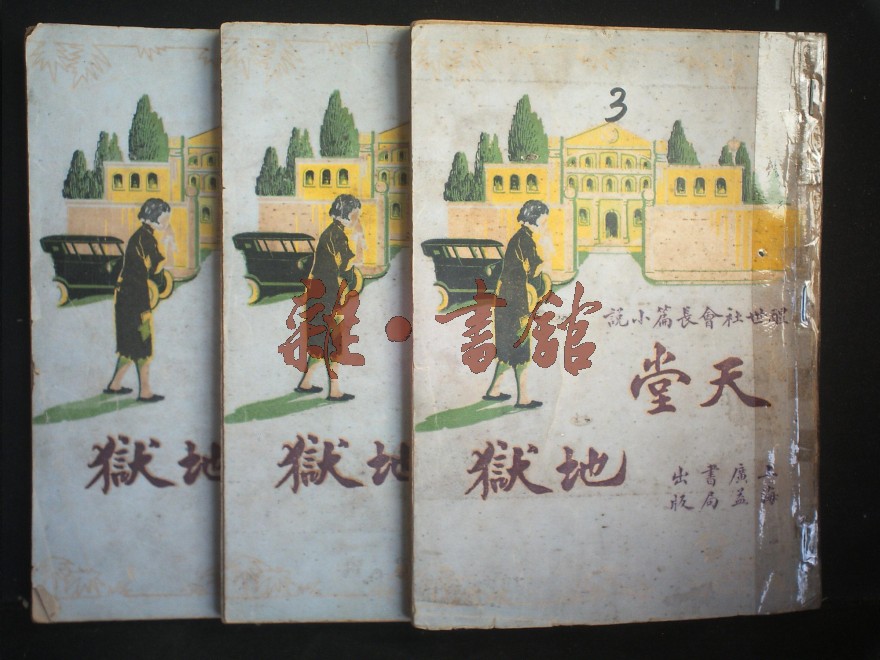 獄地
獄地
3
說小篇長會社世醒
堂天
獄地
出書廣上
版局益海
雜·書館